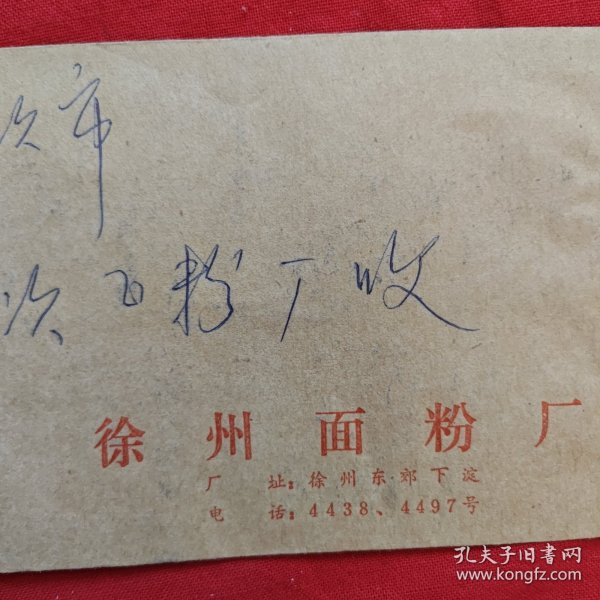 次市
次面粉厂收
徐州面粉厂
厂 址：徐州东郊下淀
电 话：4438、4497号
孔夫子旧书网
www.kongfz.com